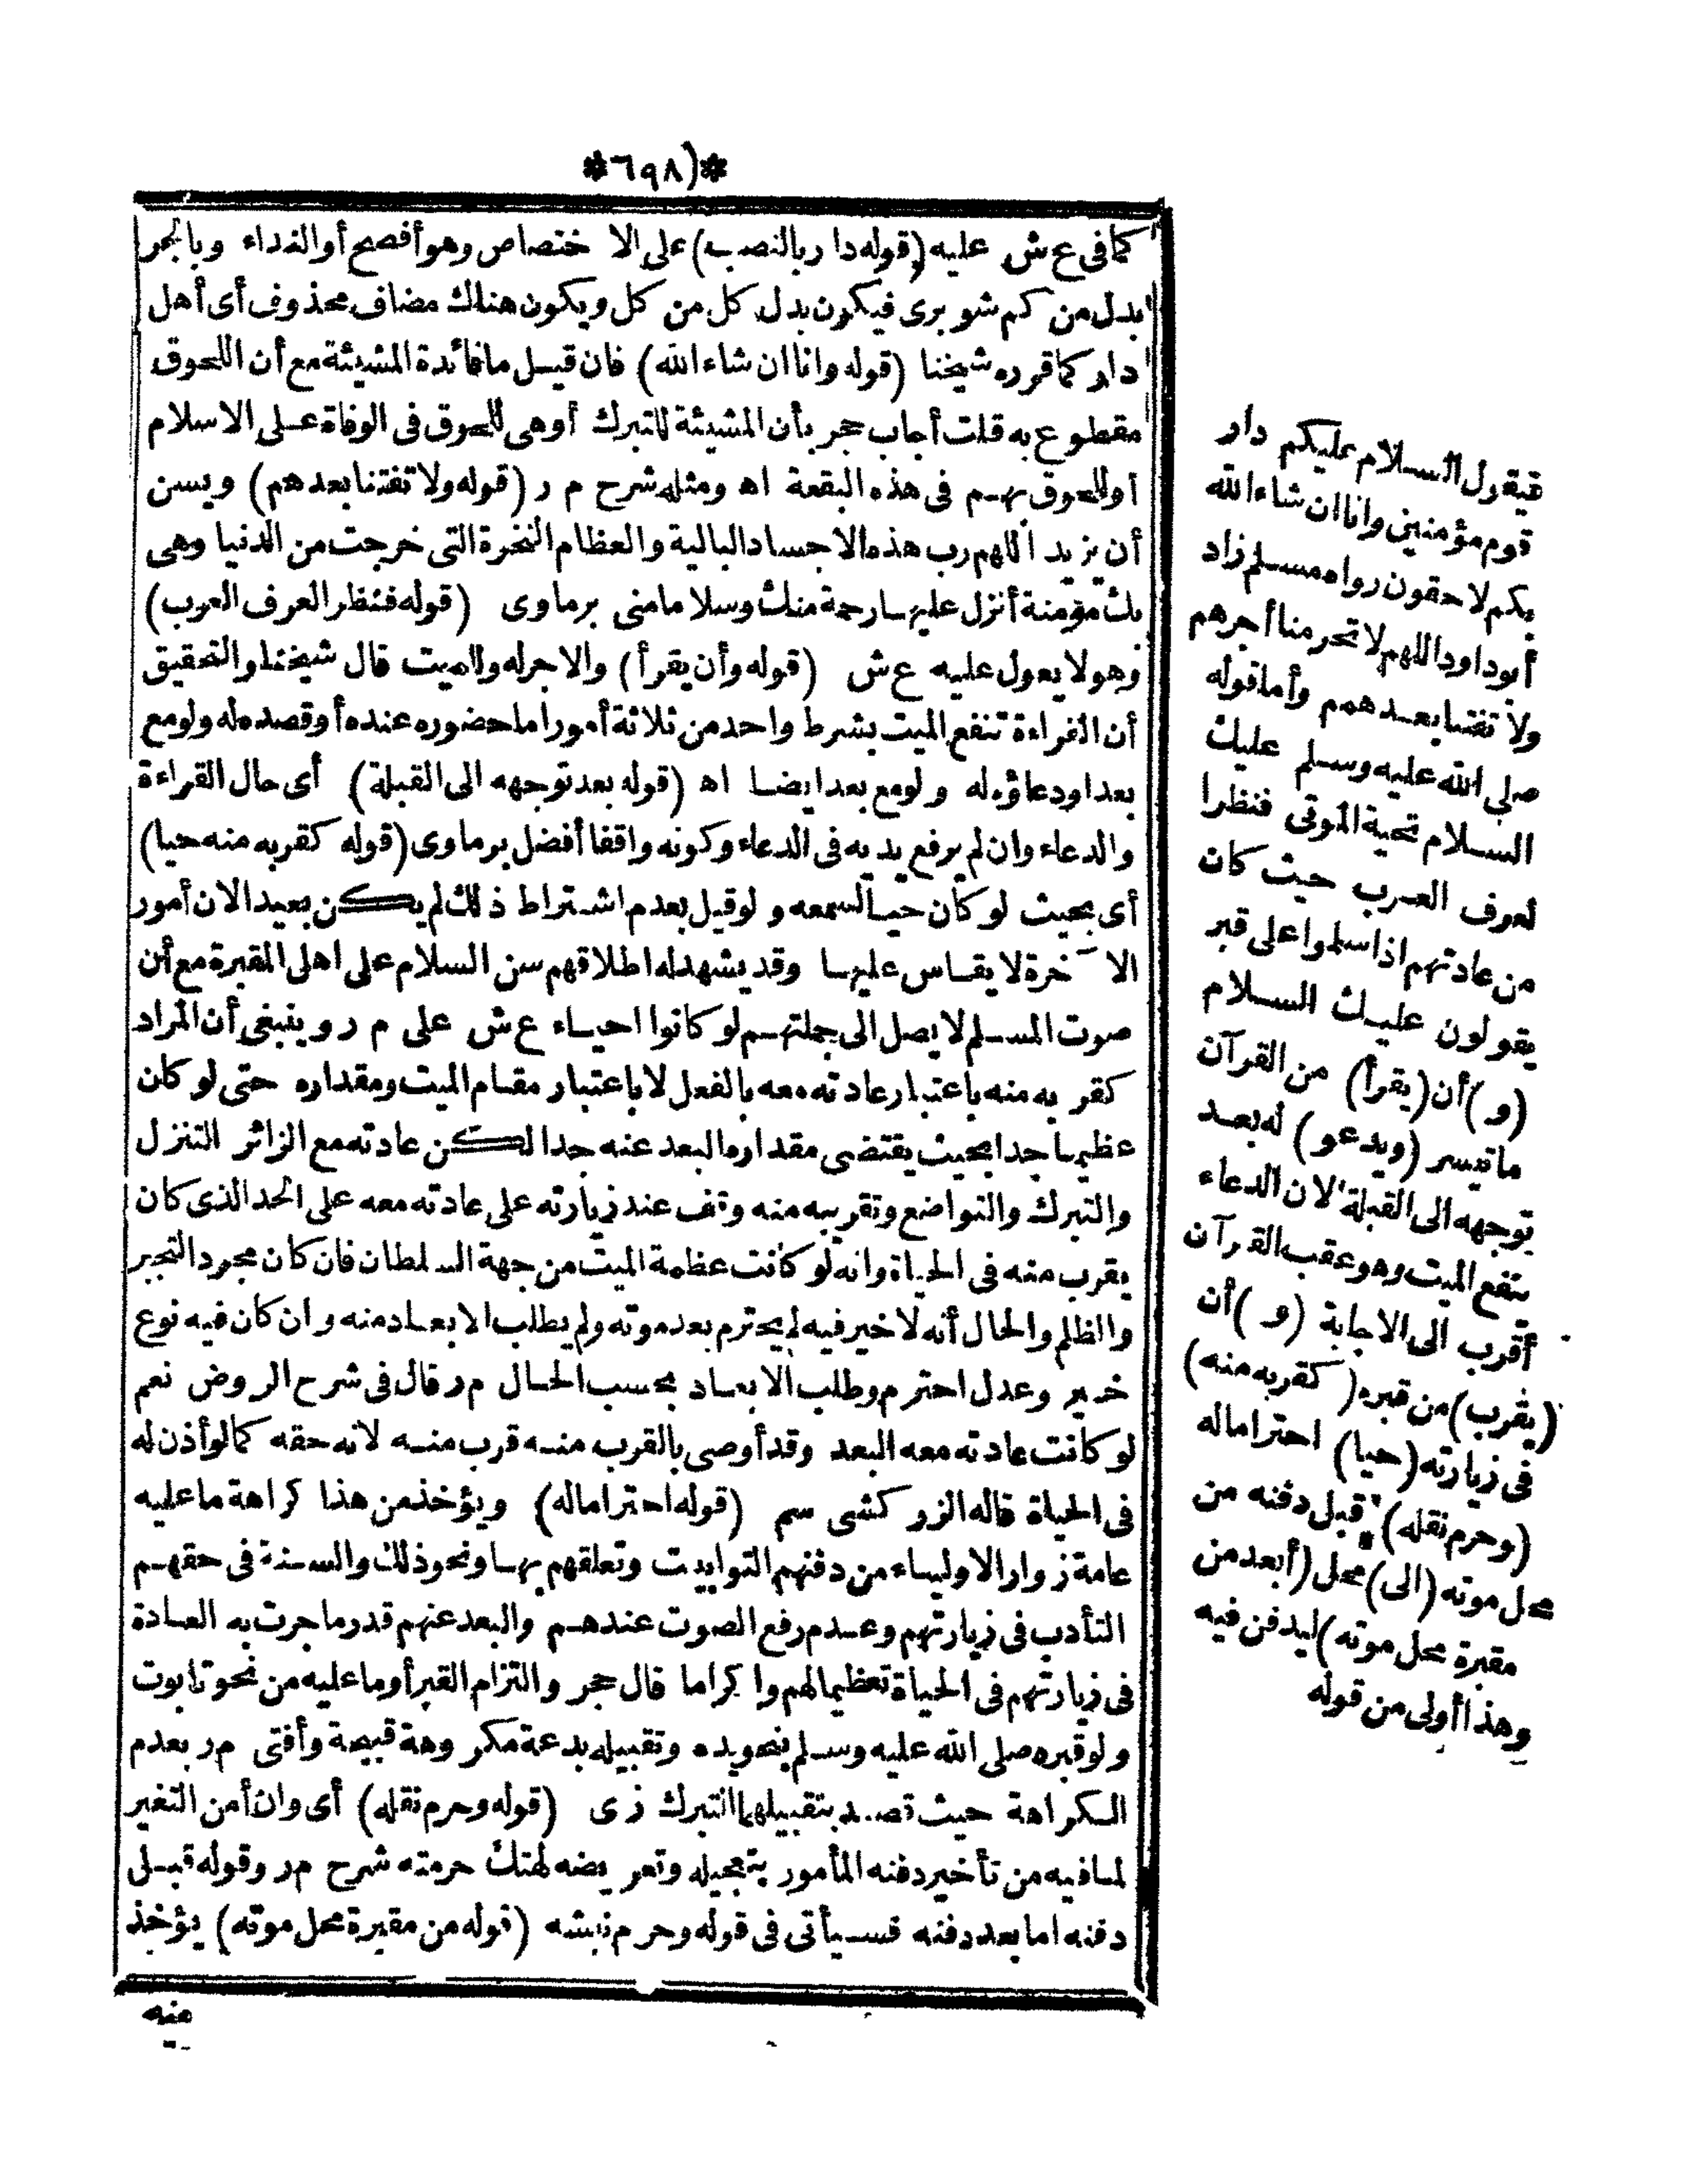 *(٦٩٨*
كما فى ع ش عليه (قوله دار بالنصب) على الاختصاص وهو أفصح أو النداء وبالجر
بدل من كم شوبرى فيكون بدل كل من كل ويكون هناك مضاف محذوف أى أهل
دار كما قرره شيخنا (قوله وانا ان شاء الله) فان قيل ما فائدة المشيئة مع أن اللحوق
مقطوع به قلت أجاب حجر بأن المشيئة للتبرك أو هى للحوق فى الوفاة على الاسلام
أو للحوق بهم فى هذه البقعة اه ومثله شرح م ر (قوله ولا تفتنا بعدهم) ويسن
أن يزيد اللهم رب هذه الاجساد البالية والعظام النخرة التى خرجت من الدنيا وهى
بك مؤمنة أنزل عليها رحمة منك وسلاما منى برماوى (قوله فنظر العرف العرب)
وهو لا يعول عليه ع ش (قوله وأن يقرأ) والاجر له وللميت قال شيخنا والتحقيق
أن القراءة تنفع الميت بشرط واحد من ثلاثة أمور اما حضوره عنده أو قصده له ولو مع
بعد او دعاؤه له ولو مع بعد ايضا اه (قوله بعد توجهه الى القبلة) أى حال القراءة
والدعاء وان لم يرفع يديه فى الدعاء وكونه واقفا أفضل برماوى (قوله كقربه منه حيا)
أى بحيث لو كان حيا لسمعه ولو قيل بعدم اشتراط ذلك لم يكن بعيدا لان أمور
الآخرة لا يقاس عليها وقد يشهد له اطلاقهم سن السلام على اهل المقبرة مع أن
صوت المسلم لا يصل الى جملتهم لو كانوا احياء ع ش على م ر وينبغى أن المراد
كقربه منه باعتبار عادته معه بالفعل لا باعتبار مقام الميت ومقداره حتى لو كان
عظيما جدا بحيث يقتضى مقداره البعد عنه جدا لكن عادته مع الزائر التنزل
والتبرك والتواضع وتقريبه منه وقف عند زيارته على عادته معه على الحد الذى كان
يقرب منه فى الحياة وانه لو كانت عظمة الميت من جهة السلطان فان كان مجرد التجبر
والظلم والحال أنه لا خير فيه لم يحترم بعد موته ولم يطلب الابعاد منه وان كان فيه نوع
خير وعدل احترم وطلب الابعاد بحسب الحال م ر قال فى شرح الروض نعم
لو كانت عادته معه البعد وقد أوصى بالقرب منه قرب منه لانه حقه كما لو أذن له
فى الحياة قاله الزركشى سم (قوله احتراما له) ويؤخذ من هذا كراهة ما عليه
عامة زوار الاولياء من دفنهم التوابيت وتعلقهم بها ونحو ذلك والسنة فى حقهم
التأدب فى زيارتهم وعدم رفع الصوت عندهم والبعد عنهم قدر ما جرت به العادة
فى زيارتهم فى الحياة تعظيما لهم واكراما قال حجر والتزام القبر أو ما عليه من نحو تابوت
ولو قبره صلى الله عليه وسلم بنحو يده وتقبيله بدعة مكروهة قبيحة وأفتى م ر بعدم
الكراهة حيث قصد بتقبيلها التبرك ز ى (قوله وحرم نقله) أى وان أمن التغير
لما فيه من تأخير دفنه المأمور بتعجيله وتعريضه لهتك حرمته شرح م ر وقوله قبل
دفنه اما بعد دفنه فسيأتى فى قوله وحرم نبشه (قوله من مقبرة محل موته) يؤخذ
منه
فيقول السلام عليكم دار
قوم مؤمنين وانا ان شاء الله
بكم لاحقون رواه مسلم زاد
أبو داود اللهم لا تحرمنا أجرهم
ولا تفتنا بعدهم وأما قوله
صلى الله عليه وسلم عليك
السلام تحية الموتى فنظرا
لعرف العرب حيث كان
من عادتهم اذا سلموا على قبر
يقولون عليك السلام
(و) أن (يقرأ) من القرآن
ما تيسر (ويدعو) له بعد
توجهه الى القبلة لان الدعاء
ينفع الميت وهو عقب القرآن
أقرب الى الاجابة (و) أن
(يقرب) من قبره (كقربه منه)
فى زيارته (حيا) احتراما له
(وحرم نقله) قبل دفنه من
محل موته (الى) محل (أبعد من
مقبرة محل موته) ليدفن فيه
وهذا أولى من قوله